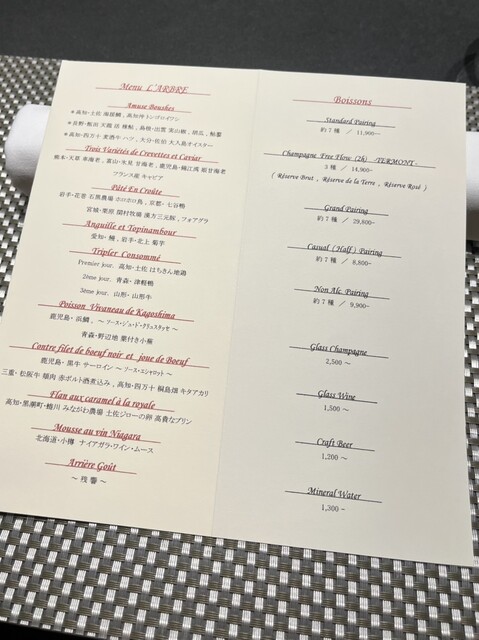 Menu L'ARBRE
Amuse Boushes
Trois Variétés de Crevettes et Caviar
栃木・天草 車海老, 富山・氷見 甘海老, 鹿児島・錦江湾 姫甘海老
フランス産 キャビア
Pâté En Croûte
岩手・花巻 石黒農場 ホロホロ鳥, 京都・七谷鴨
宮城・栗原 関村牧場 漢方三元豚, フォアグラ
Anguille et Topinambour
愛知・鰻, 岩手・北上 菊芋
Tripler Consommé
Premier jour. 高知・土佐 はちきん地鶏
2ème jour. 青森・津軽鴨
3ème jour. 山形・山形牛
Poisson Vivaneau de Kagoshima
鹿児島・浜鯛, ～ソース・ジュ・ド・クリュスタッセ～
青森・野辺地 葉付き小蕪
Contre filet de boeuf noir et joue de Boeuf
鹿児島・黒牛 サーロイン ～ソース・エシャロット～
三重・松阪牛 頬肉 赤ポルト酒煮込み, 高知・四万十 桐島畑 キタアカリ
Flan aux caramel à la royale
高知・黒潮町・蜷川 みながわ農場 土佐ジローの卵 高貴なプリン
Mousse au vin Niagara
北海道・小樽 ナイアガラ・ワイン・ムース
Arrière Goût
～ 残 響 ～
Boissons
Standard Pairing
約7種 / 11,900~
Champagne Free Flow (2h) -TERMONT-
3種 / 14,900~
( Réserve Brut , Réserve de la Terre , Réserve Rosé )
Grand Pairing
約7種 / 29,800~
Casual (Half) Pairing
約7種 / 8,800~
Non Alc. Pairing
約7種 / 9,900~
Glass Champagne
2,500 ~
Glass Wine
1,500 ~
Craft Beer
1,200 ~
Mineral Water
1,300 ~